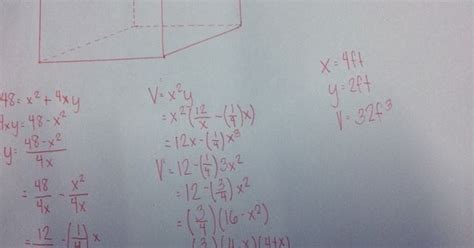 48 = x² + 4xy
4xy = 48 - x²
y = 48 - x² / 4x
= 48/4x - x²/4x
= 12/x - (1/4)x
V = x²y
= x²(12/x - (1/4)x)
= 12x - (1/4)x³
V' = 12 - (1/4)3x²
= 12 - (3/4)x²
= (3/4)(16 - x²)
= (3/4)(4-x)(4+x)
x = 4ft
y = 2ft
V = 32f³